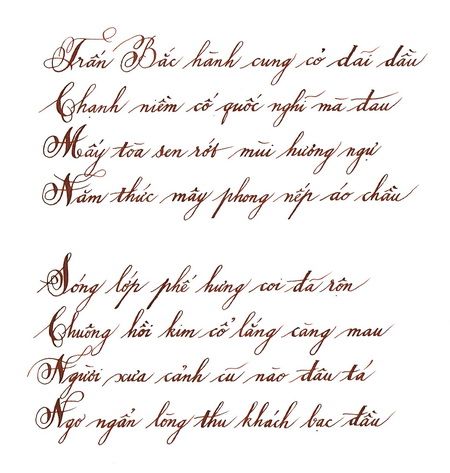 Trấn Bắc hành cung cỏ dãi dầu
Chạnh niềm cố quốc nghĩ mà đau
Mấy tòa sen rớt mùi hương ngự
Năm thức mây phong nếp áo chầu
Sóng lớp phế hưng coi đã rộn
Chuông hồi kim cổ lắng càng mau
Người xưa cảnh cũ nào đâu tá
Ngơ ngẩn lòng thu khách bạc đầu